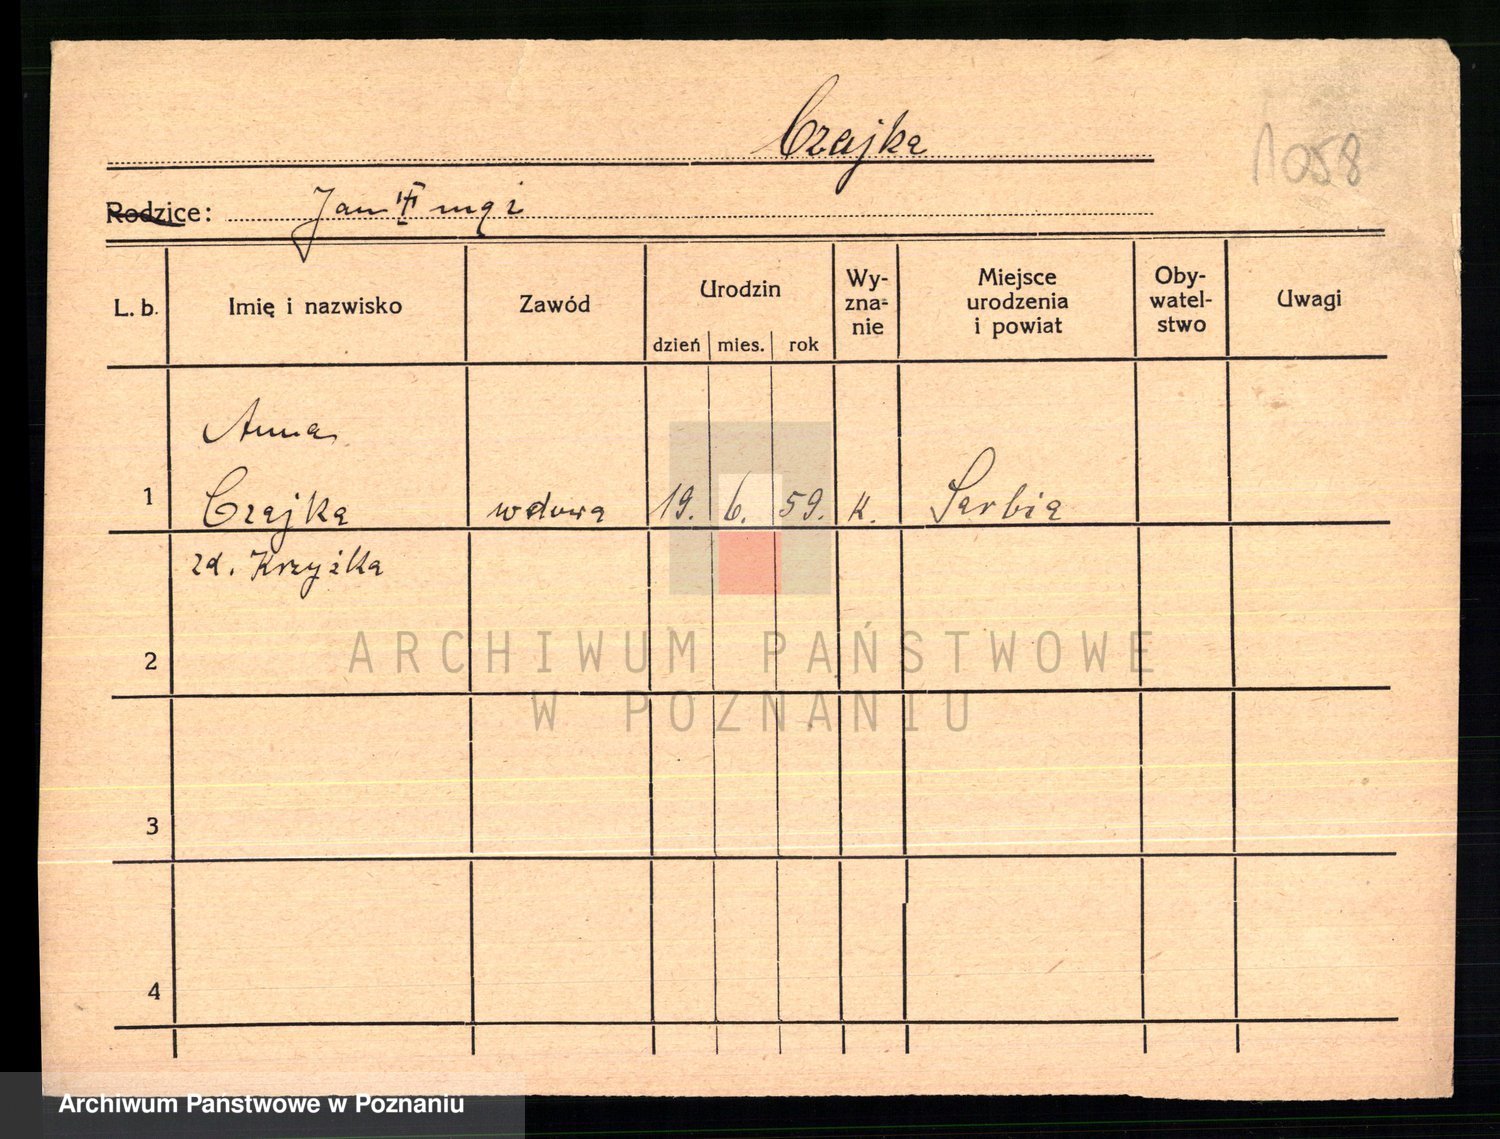 Czajka
1058
Rodzice: Jan III mąż
L. b. Imię i nazwisko Zawód Urodzin dzień mies. rok Wy-zna-nie Miejsce urodzenia i powiat Oby-watel-stwo Uwagi
Anna
1 Czajka wdowa 19. 6. 59. k. Sarbia
zd. Krzyżka
2
ARCHIWUM PAŃSTWOWE
W POZNANIU
3
4
Archiwum Państwowe w Poznaniu